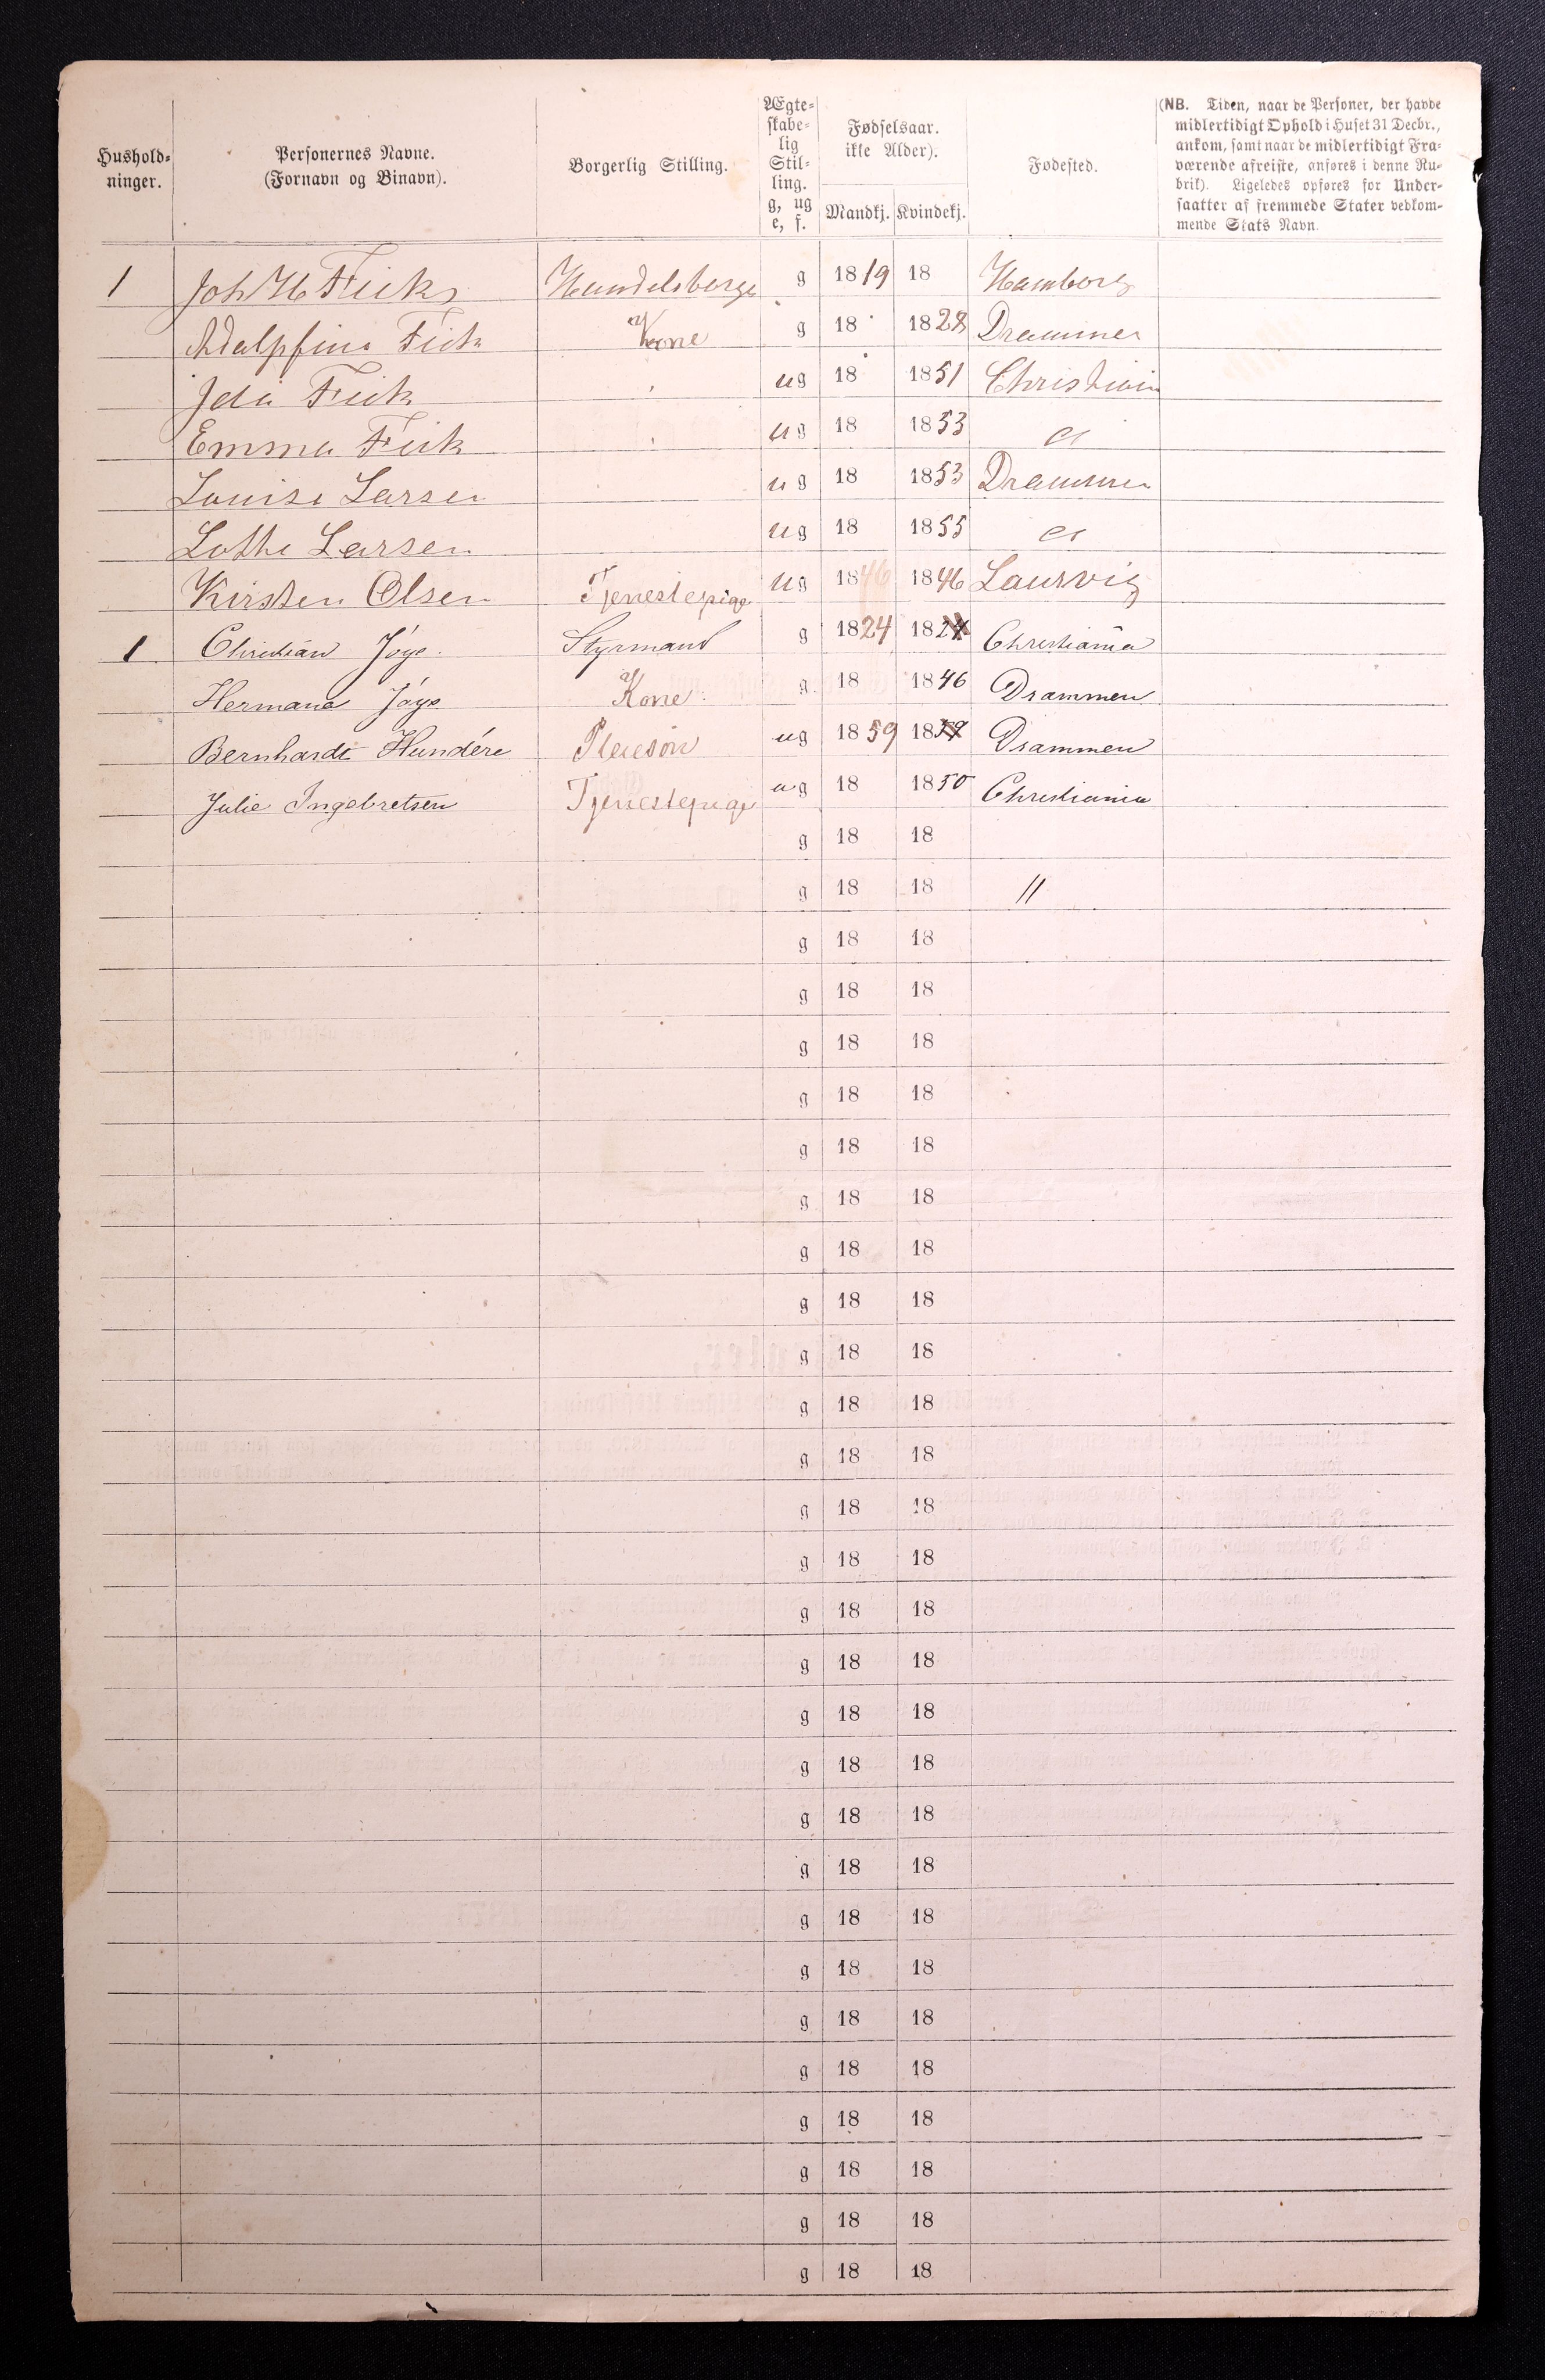 Hushold-
ninger.
Personernes Navne.
(Fornavn og Binavn).
Borgerlig Stilling.
Ægte-
skabe-
lig
Stil-
ling.
g, ug
e, f.
Fødselsaar.
ikke Alder).
Mandkj. Kvindekj.
Fødested.
(NB. Tiden, naar de Personer, der havde
midlertidigt Ophold i Huset 31 Decbr.,
ankom, samt naar de midlertidigt Fra-
værende afreiste, anføres i denne Ru-
brik). Ligeledes opføres for Under-
saatter af fremmede Stater vedkom-
mende Stats Navn.
1 Joh H Ficks Handelsborger g 1819 18 Hamborg
Adolphine Fick Kone g 18 1828 Drammen
Ida Fick ug 18 1851 Christiania
Emma Fick ug 18 1853
Louise Larsen ug 18 1853 Drammen
Lothe Larsen ug 18 1855
Kirsten Olsen Tjenestepige ug 1846 1846 Laurvig
1 Christian Jöye Styrmand g 1824 1824 Christiania
Hermana Jöye Kone g. 18 1846 Drammen
Bernhardt Hundére Pleiesön ug 1859 18 Drammen
Julie Ingebretsen Tjenestepige ug 18 1850 Christiania
g 18 18
g 18 18 //
g 18 18
g 18 18
g 18 18
g 18 18
g 18 18
g 18 18
g 18 18
g 18 18
g 18 18
g 18 18
g 18 18
g 18 18
g 18 18
g 18 18
g 18 18
g 18 18
g 18 18
g 18 18
g 18 18
g 18 18
g 18 18
g 18 18
g 18 18
g 18 18
g 18 18
g 18 18
g 18 18